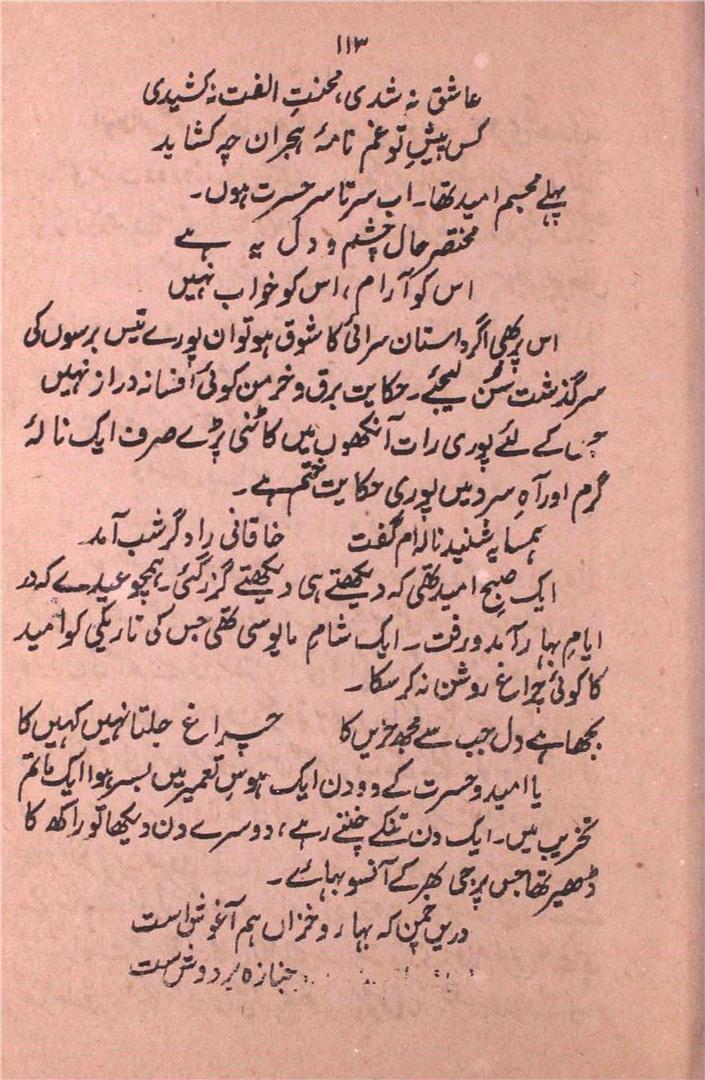 ۱۱۳
عاشق نہ شدی، محنتِ الفت نہ کشیدی
کس پیشِ تو غم نامۂ ہجران چہ کشاید
پہلے مجسم امید تھا۔ اب سر تا سر حسرت ہوں۔
مختصر حال چشم و دل یہ ہے
اس کو آرام، اس کو خواب نہیں
اس پر بھی اگر داستان سرائی کا شوق ہو تو ان پورے تیس برسوں کی
سرگذشت سُن لیجئے۔ حکایت برق و خرمن کوئی افسانہ دراز نہیں
جس کے لئے پوری رات آنکھوں میں کاٹنی پڑے صرف ایک نالۂ
گرم اور آہِ سرد میں پوری حکایت ختم ہے۔
ہمسایہ شنید نالہ ام گفت خاقانی را دگر شب آمد
ایک صبحِ امید تھی کہ دیکھتے ہی دیکھتے گزر گئی۔ ہمچو عیدے کہ در
ایامِ بہار آمد و رفت۔ ایک شامِ مایوسی تھی جس کی تاریکی کو امید
کا کوئی چراغ روشن نہ کر سکا۔
بجھا ہے دل جب سے مجھ حزیں کا چراغ جلتا نہیں کہیں کا
یا امید و حسرت کے دو دن ایک ہوسِ تعمیر میں بسر ہوا ایک ماتمِ
تخریب میں۔ ایک دن تنکے چنتے رہے، دوسرے دن دیکھا تو راکھ کا
ڈھیر تھا جس پر جی بھر کے آنسو بہائے۔
دریں چمن کہ بہار و خزاں ہم آغوش است
جنازہ بر دوش است